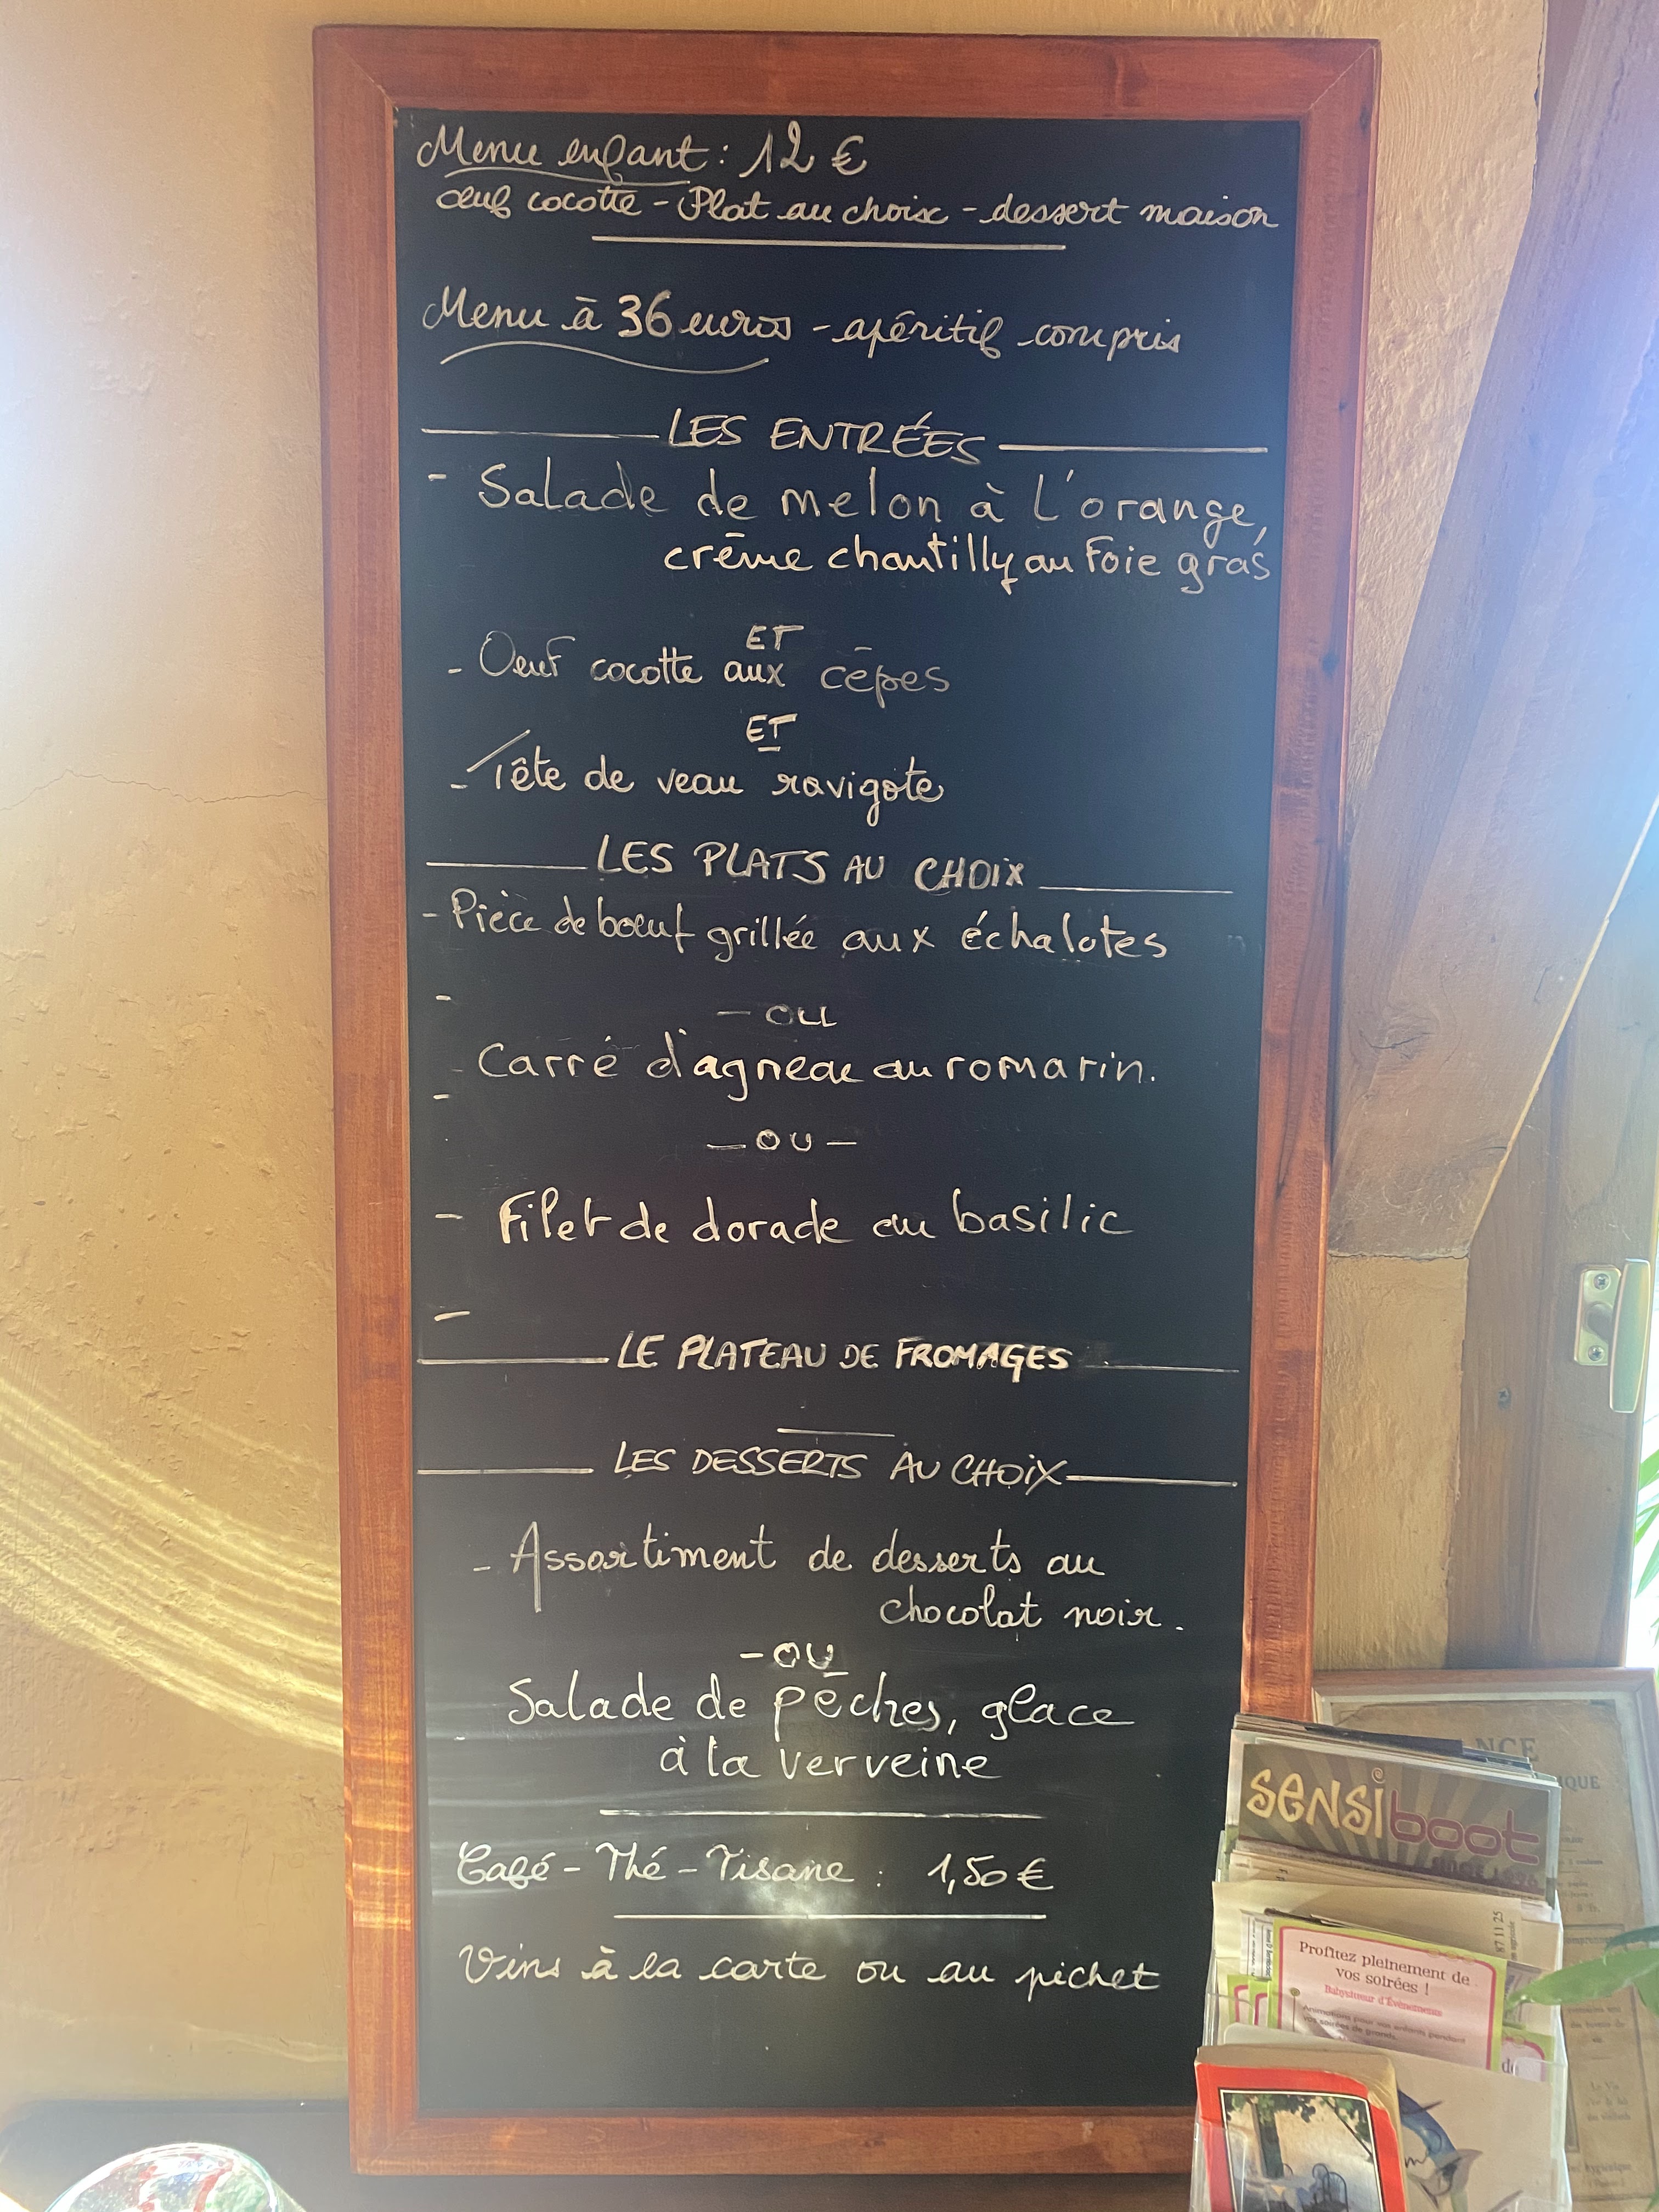 Menu enfant : 12 €
œuf cocotte - Plat au choix - dessert maison
Menu à 36 euros - apéritif compris
LES ENTRÉES
- Salade de melon à l'orange,
crème chantilly au Foie gras
ET
- Oeuf cocotte aux cèpes
ET
- Tête de veau ravigote
LES PLATS AU CHOIX
- Pièce de boeuf grillée aux échalotes
- OU
Carré d'agneau au romarin.
- OU -
- Filet de dorade au basilic
LE PLATEAU DE FROMAGES
LES DESSERTS AU CHOIX
- Assortiment de desserts au
chocolat noir.
- OU
Salade de pêches, glace
à la verveine
Café - Thé - Tisane : 1,50 €
Vins à la carte ou au pichet
NCE
IQUE
SENSIboot
87 11 25
Profitez pleinement de
vos soirées !
Babysitteur d'Évènements
Animations pour vos enfants pendant
vos soirées de grands.